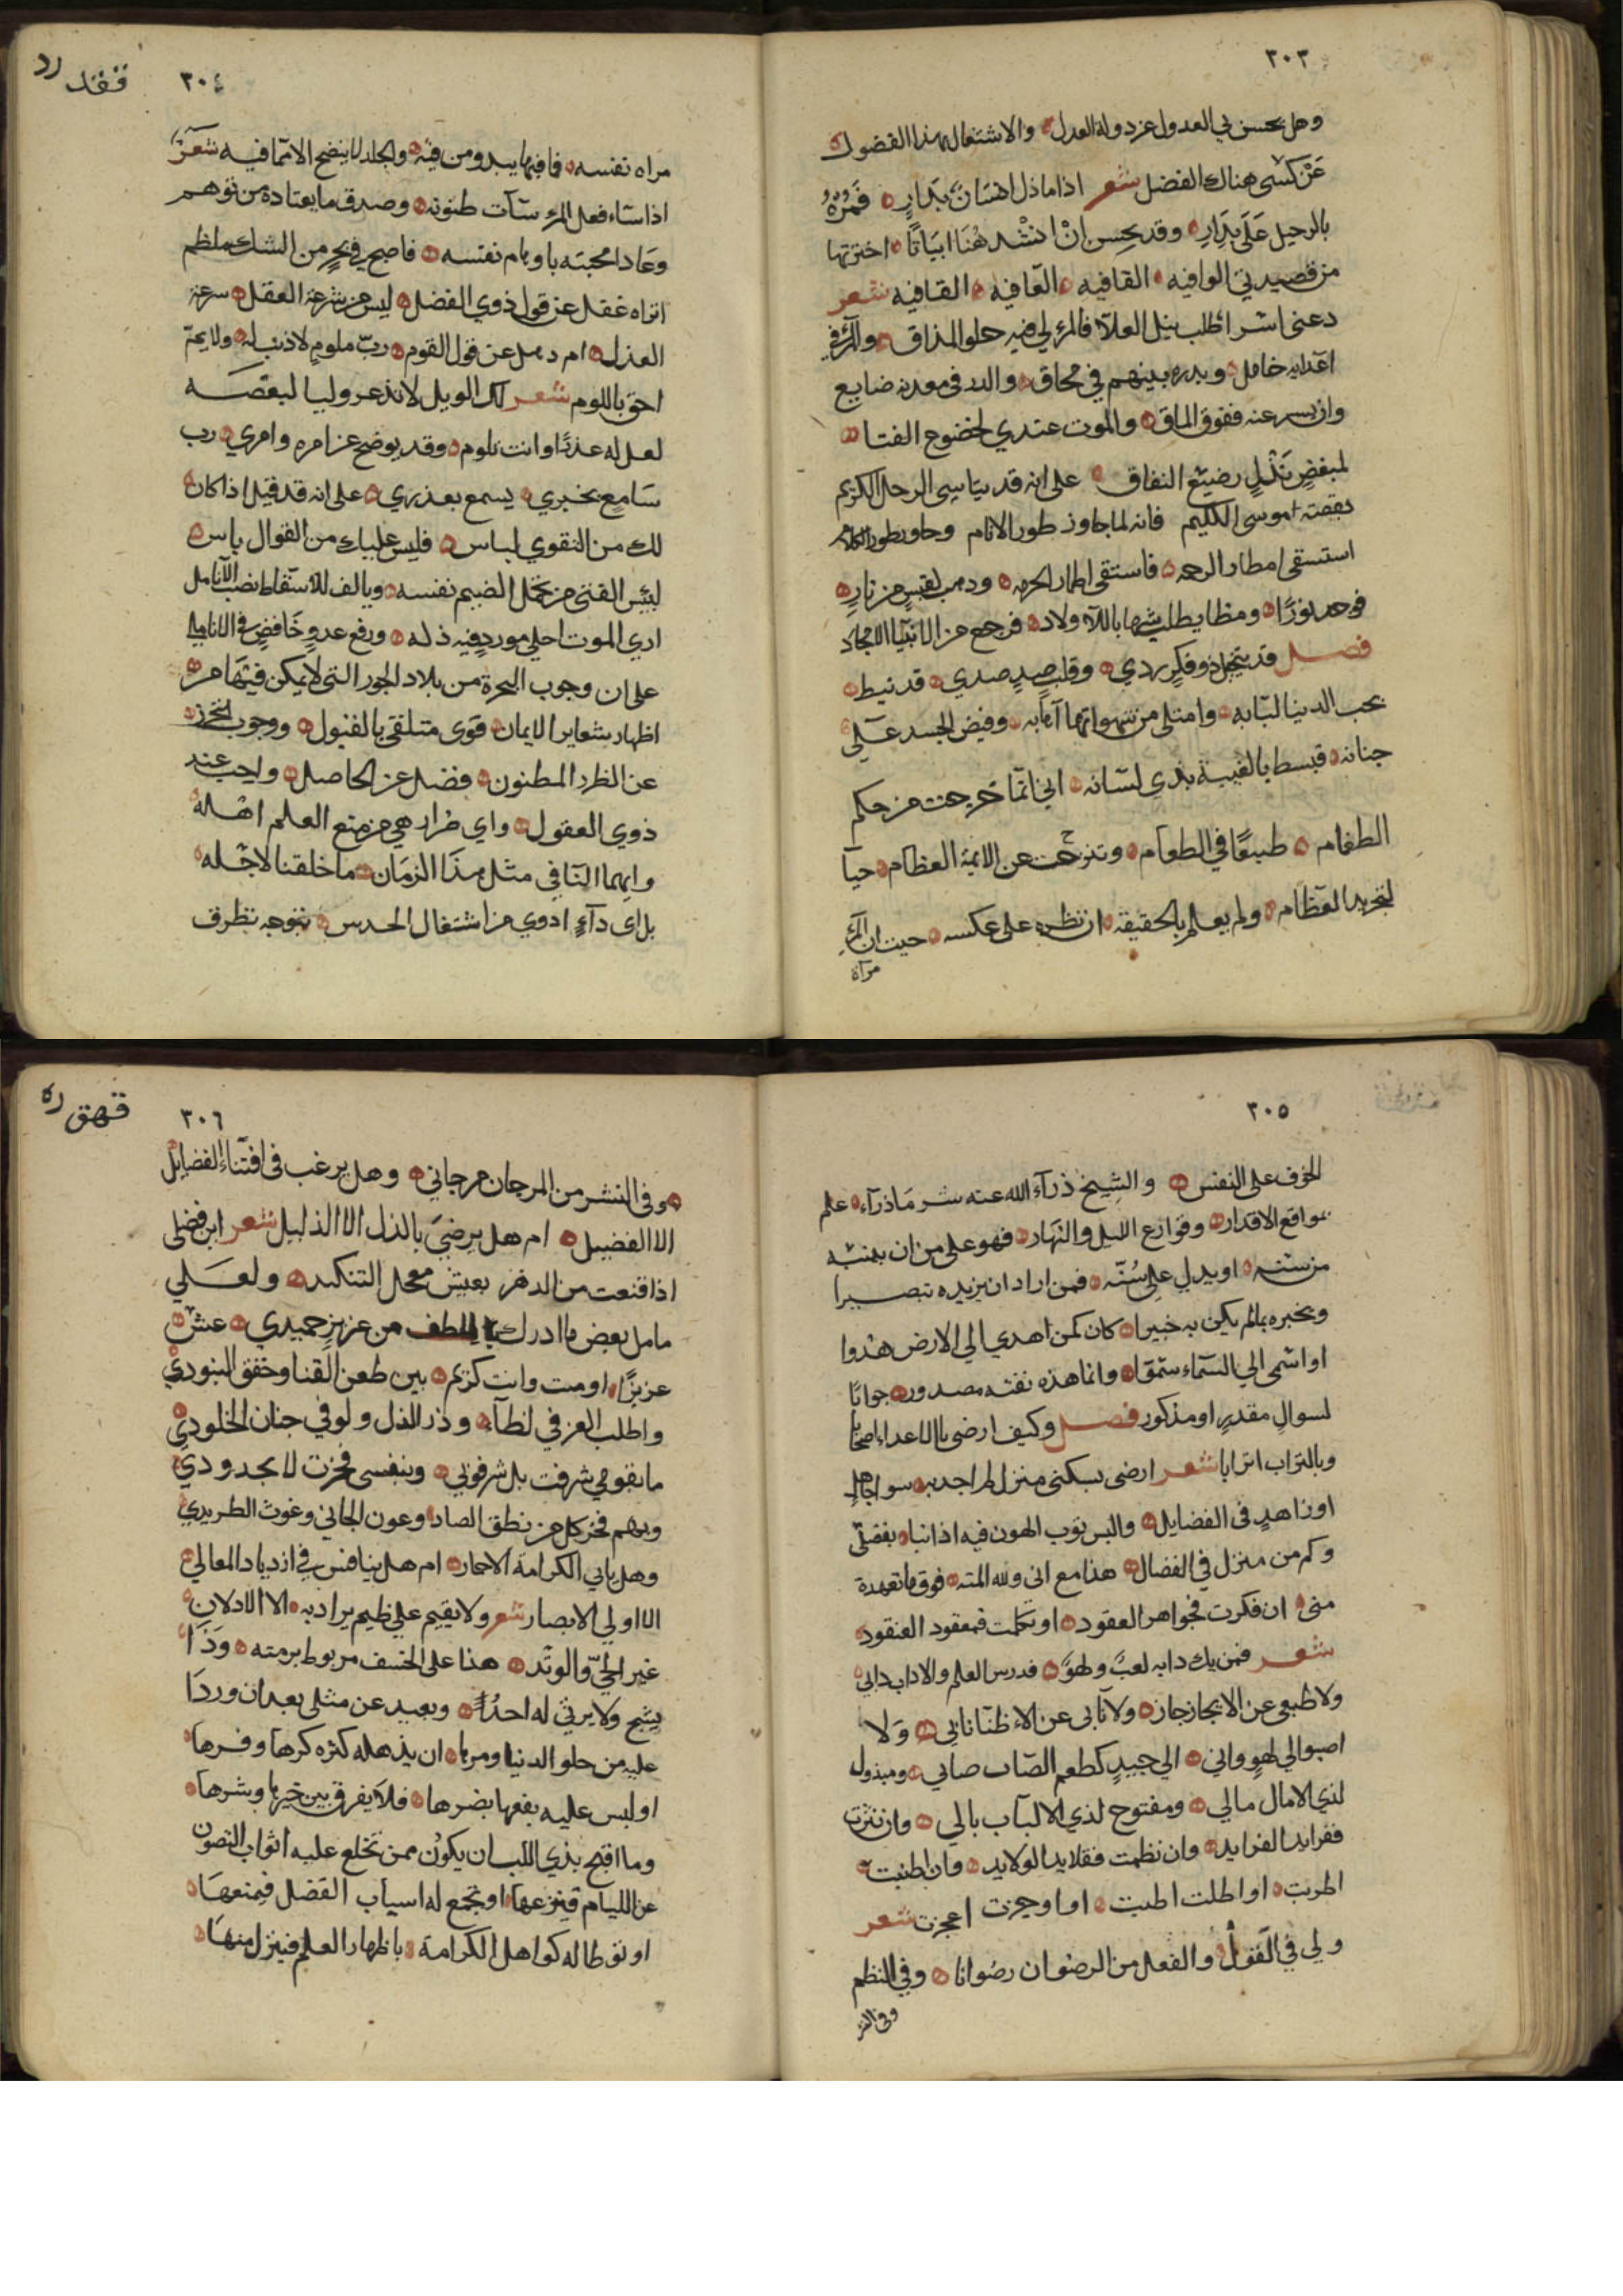 ٣٠٣
وهل يحسن لي العدول عن دولة العدل والاشتغال بهذا الفضول
عن كسْى هناك الفضل شعر اذا ماذل انسان بدارٍ فمره
بالرحيل على بدار وقد يحسن انْ انشد هُنا ابياتًا اخترتها
من قصيدتي الوافيه القافيه العافيه القافيه شعر
دعنى اسر اطلب نيل العلا فالمر لي فيه حلو المذاق والمرء في
اعدايه خامل وبدره بينهم في محاق والدر في معدنه ضايع
وان يسر عنه ففوق الماق والموت عندي لخضوع الفتا
لمبغضٍ نذلٍ رضيع النفاق على انه قد يتاسى الرجل الكريم
بقصة موسى الكليم فانه لما جاوز طور الانام وحاور بطور الكلام
استسقى امطار الرحمه فاستقى اطمار الحرمه وذهب لقبسٍ من نارٍ
فوجد نورًا ومظا يطلب شها باللاولاد فرجع من الانبيا الامجاد
فصل قد يتخيل ذو فكرٍ ردي وقلب صدٍ صدي قد نيط
بحب الدنيا لبابه وامتلى من شهواتها آهابه وفيض الحسد على
جنانه فبسط بالغيبة بذي لسانه اني انما خرجت من حكم
الطغام طبعًا في الطعام وتنزحت عن الايمة العظام حبا
لتجريد العظام ولم يعلم بالحقيقه ان نظره على عكسه حيث ان المرء
مرآة
٣٠٤
ققد رد
مراه نفسه فما فيها يبدو من فيه والجلد لا ينضح الا بما فيه شعر
اذا ساء فعل المرء ساءت ظنونه وصدق ما يعتاده من توهم
وعادا محبيه باوهام نفسه فاصبح في بحرٍ من الشك مظلم
اتراه غفل عن قول ذوي الفضل ليس من شرعة العقل سرعة
العذل ام ذهل عن قول القوم ربّ ملومٍ لا ذنب له ولا يحتم
احق باللوم شعر لك الويل لا تذعر وليا لبعضه
لعل له عذرًا وانت تلوم وقد يوضح عن امره وامري رب
سامع بخبري يسمع بعذري على انه قد قيل اذا كان
لك من التقوي لباس فليس عليك من القوال باس
لبيس الفتى من يحمل الضيم نفسه ويالف للاسقاط نصب الانامل
اري الموت احلي مورد فيه ذله ورفع عدوٍ خافضٍ في الانامل
على ان وجوب الهجرة من بلاد الجور التي لا يمكن فيها من
اظهار شعاير الايمان قوى متلقى بالقبول ووجوب التحرز
عن الطرد المظنون فضل عن الحاصل واجب عند
ذوي العقول واي ضرار هي من منع العلم اهله
وايهما النافي مثل هذا الزمان ما خلقنا لاجله
بل اى دآءٍ ادوي من اشتغال الحدس بتوجه تطرف
٣٠٥
الخوف على النفس والشيخ ذرآه الله عنه شر ما ذرآه علم
مواقع الاقدار وقوارع الليل والنهار فهو على من ان ينبه
من سنته او يدل على سُنّه فمن اراد ان يزيده تبصيرا
ويخبره بما لم يكن به خبيرا كان كمن اهدي الي الارض هدوا
او اسْمى الي السماء سمّوا وانما هذه نفثه مصدور جوابًا
لسوال مقدرٍ او مذكور فصل وكيف ارضى بالاعداء اصحابا
وبالتراب اترابا شعر ارضى بسكنى منزل لم اجد به سوا جاهلٍ
او زاهدٍ في الفضايل والبس ثوب الهون فيه اذا نبا بفضلي
وكم من منزل في الفضال هذا مع اني ولله المنه فوق ما تعهده
منى ان فكرت فجواهر العقود او تكلمت فمعقود العنقود
شعر فمن يك دابه لعبً ولهوً فدرس العلم والاداب دابي
ولا طبعي عن الايجاز جاز ولا نابي عن الاطناب نابي ولا
اصبوا لي لهوٍ واني الي جيدٍ كطعم الصّاب صابي ومبذول
لذي الامال مالي ومفتوح لذي الالباب بابي وان نثرت
ففرايد الفرايد وان نظمت فقلايد الولايد وان اطنبت
اطربت او اطلت اطبت او اوجزت اعجزت شعر
ولي في القول والفعل من الرضوان رضوانا وفي النظم
وفي النثر
٣٠٦
قهق ره
وفي النثر من المرجان مرجاني وهل يرغب في اقتناء الفضايل
الا الفضيل ام هل يرضى بالذل الا الذليل شعر اين فضلى
اذا قنعت من الدهر بعيش معجل التنكيد ولعلي
مامل بعض ما ادرك باللطف من عزيزٍ حميدي عش
عزيزًا او مت وانت كريم بين طعن القنا وخفق البنودي
واطلب العز في لظآ وذر الذل ولو في جنان الخلودي
ما بقومي شرفت بل شرفوا بي وبنفسي فخرت لا بجدودي
وبهم فخر كل من نطق الضاد وعون الجاني وغوث الطريدي
وهل يابي الكرامة الا حمار ام هل ينافس في ازدياد المعالي
الا اولي الابصار شعر ولا يقيم على ظيم يراد به الا الاذلان
غير الحيّ والوتد هذا على الخسف مربوط برمته وذا
يشج ولا يرثي له احدُ وبعيد عن مثلي بعد ان وردا
عليه من حلو الدنيا ومرها ان يذهله كثره كرها وفرها
او ليس عليه نفعها بضرها فلا يفرق بين خيرها وشرها
وما اقبح بذي اللب ان يكون ممن تخلع عليه اثواب التصون
عن الليام فينزعها او تجمع له اسباب الفضل فيمنعها
او توطا له كواهل الكرامة باظهار العلم فينزل منها